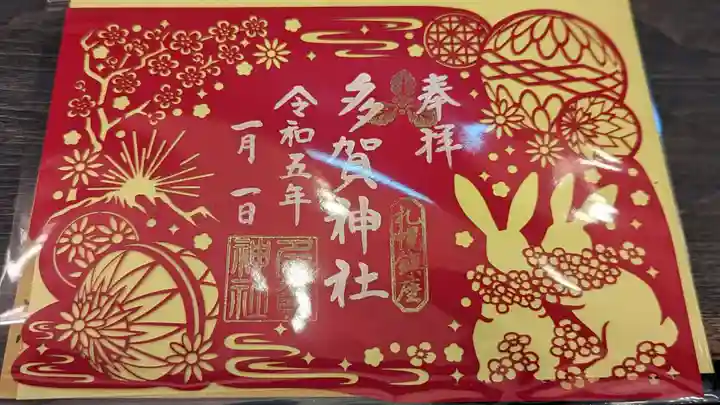 奉拝
札幌鎮座
多賀神社
令和五年
一月一日
多賀神社